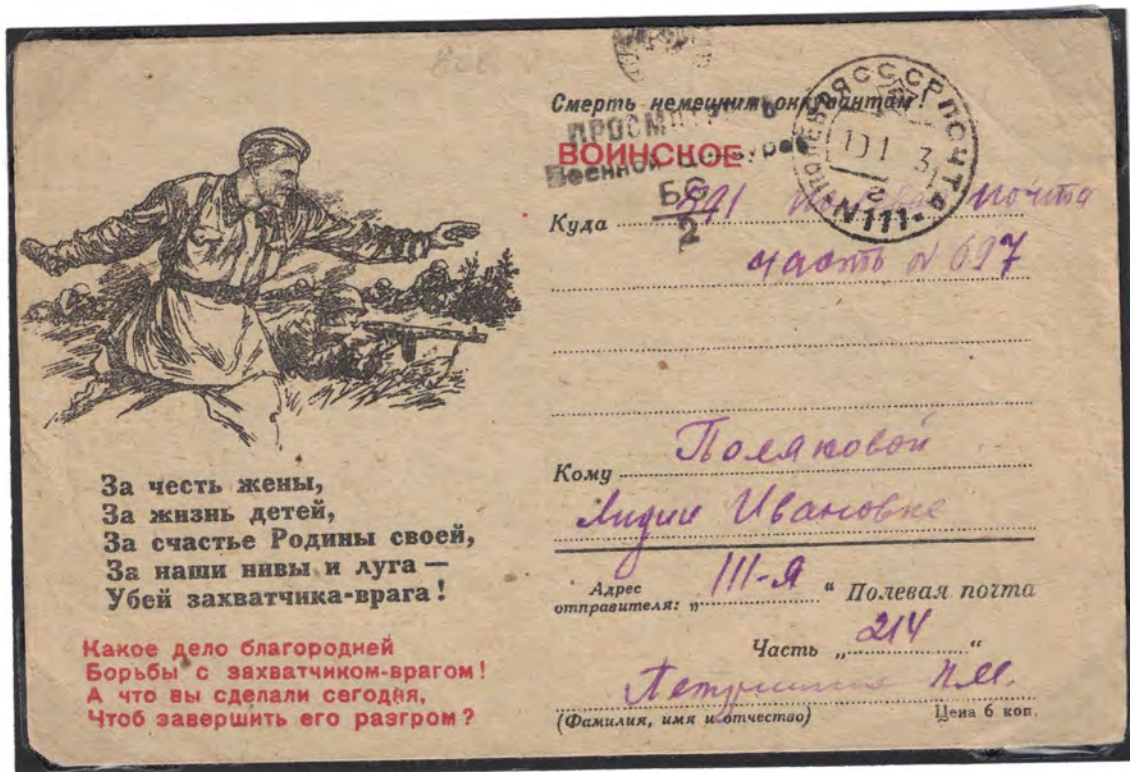 Смерть немецким оккупантам!
ПРОСМОТРЕНО
Военной Цензурой
БС
2
ПОЛЕВАЯ СССР ПОЧТА
N111
ВОИНСКОЕ
Куда 891 Полевая Почта
часть N 697
Кому Поляковой
Лидии Ивановне
Адрес отправителя: „111-я“ Полевая почта
Часть „214“
П.М.
(Фамилия, имя и отчество)
Цена 6 коп.
За честь жены,
За жизнь детей,
За счастье Родины своей,
За наши нивы и луга —
Убей захватчика-врага!
Какое дело благородней
Борьбы с захватчиком-врагом!
А что вы сделали сегодня,
Чтоб завершить его разгром?